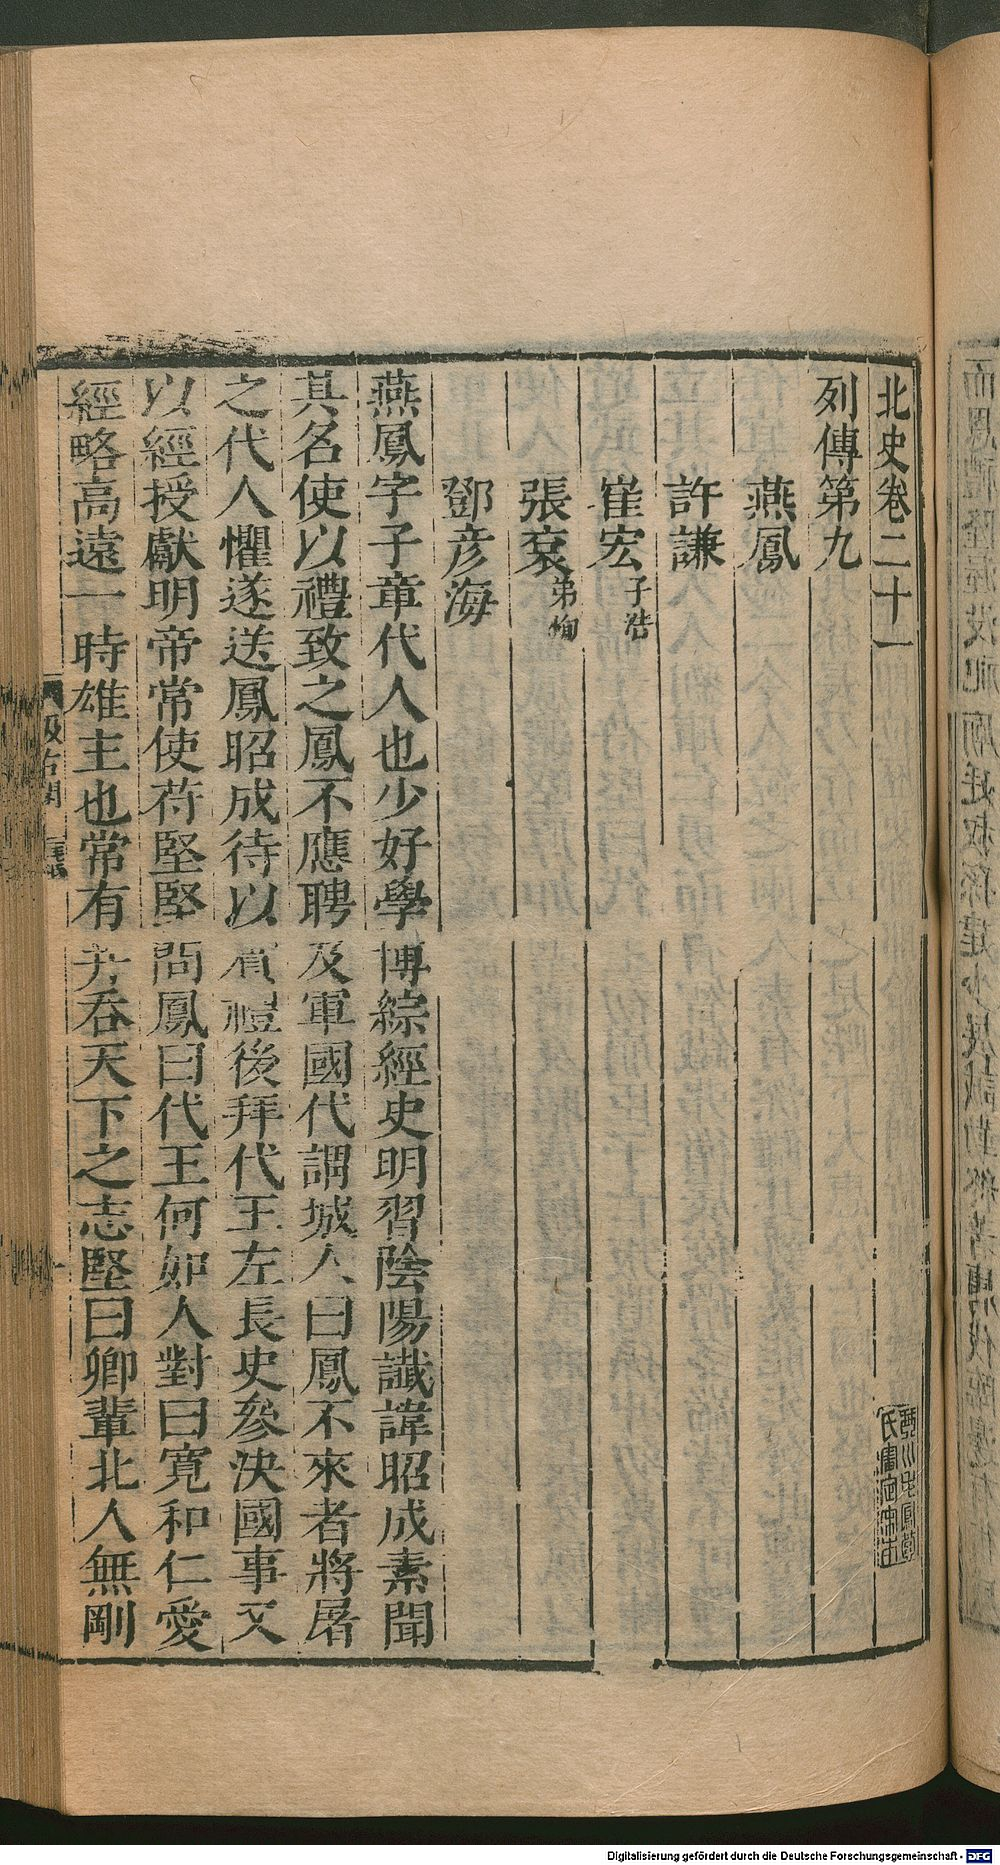 北史卷二十一
列傳第九
燕鳳
許謙
崔宏 子浩
張袞 弟恂
鄧彦海
燕鳳字子章代人也少好學博綜經史明習陰陽讖諱昭成素聞
其名使以禮致之鳳不應聘及軍國代謂城人曰鳳不來者將屠
之代人懼遂送鳳昭成待以賓禮後拜代王左長史參決國事又
以經授獻明帝常使苻堅堅問鳳曰代王何如人對曰寬和仁愛
經略高遠一時雄主也常有并吞天下之志堅曰卿輩北人無剛
汲古閣
Digitalisierung gefördert durch die Deutsche Forschungsgemeinschaft - DFG